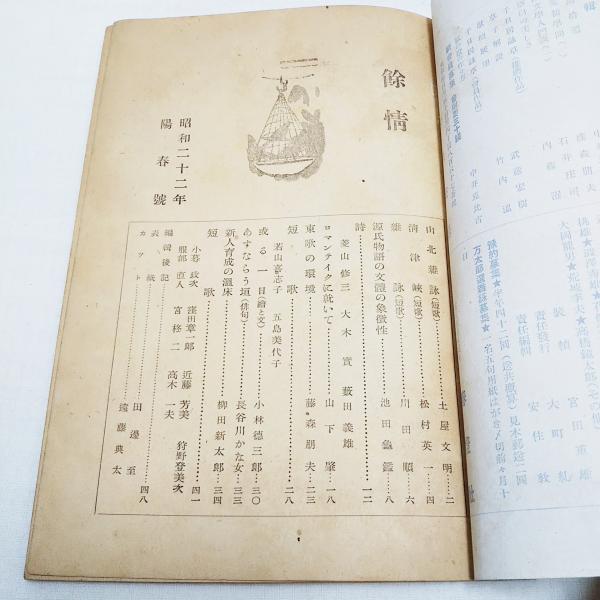 餘情
昭和二十二年
陽春號
山北雜詠(短歌)…土屋文明…二
松村英一…四
清津峽(短歌)…川田順…六
雜詠(短歌)
源氏物語の文體の象徴性…池田龜鑑…八
詩…一二
菱山修三 大木實 藪田義雄
ロマンテイクに就いて…山下肇…一八
東歌の環境…藤森朋夫…二三
短歌…二八
若山喜志子 五島美代子
或る一日(繪と文)…小林德三郎…三〇
あすならう垣(俳句)…長谷川かな女…三三
新人育成の溫床…柳田新太郎…三四
短歌…四一
小暮政次 窪田章一郎 近藤芳美 狩野登美次
服部直人 宮柊二 高木一夫
編輯後記…四八
表紙…田邊至
カット…遠藤典太
武藤宏樹
竹內溫
中井克比古
石井庄司
責任發行
責任編輯
裝幀
宮田重雄
大町糺
安住敦